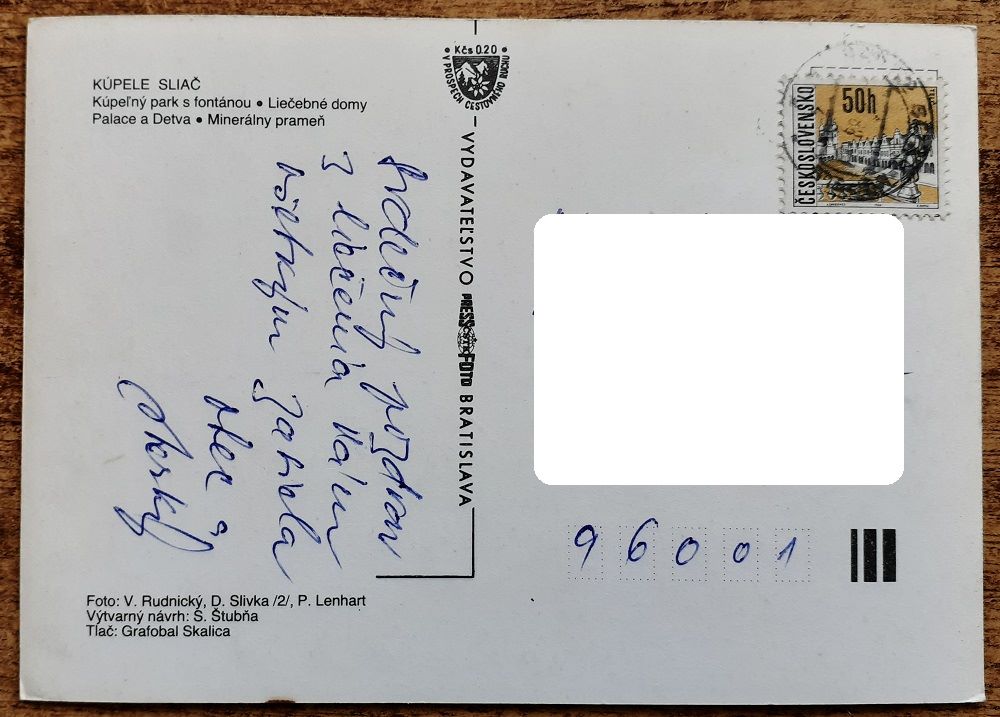 KÚPELE SLIAČ
Kúpeľný park s fontánou • Liečebné domy
Palace a Detva • Minerálny prameň
Kčs 0.20
V PROSPECH CESTOVNÉHO RUCHU
VYDAVATEĽSTVO PRESSFOTO BRATISLAVA
Srdečný pozdrav
z liečenia Vám
všetkým posiela
ČESKOSLOVENSKO
50h
96001
Foto: V. Rudnický, D. Slivka /2/, P. Lenhart
Výtvarný návrh: S. Štubňa
Tlač: Grafobal Skalica